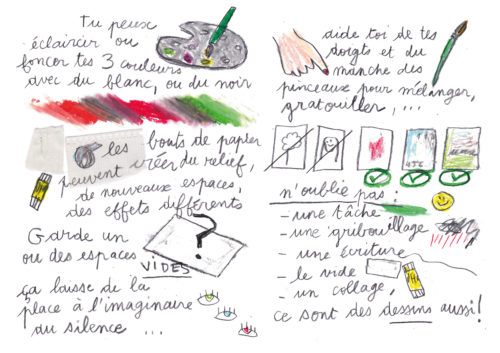 Tu peux
éclaircir ou
foncer tes 3 couleurs
avec du blanc, ou du noir
les bouts de papier
peuvent créer du relief,
de nouveaux espaces,
des effets différents
Garde un
ou des espaces
VIDES
?
ça laisse de la
place à l'imaginaire
du silence ...
aide toi de tes
doigts et du
manche des
pinceaux pour mélanger,
gratouiller, ...
n'oublie pas :
- une tâche
- une gribouillage
- une écriture
- le vide
- un collage,
ce sont des dessins aussi !